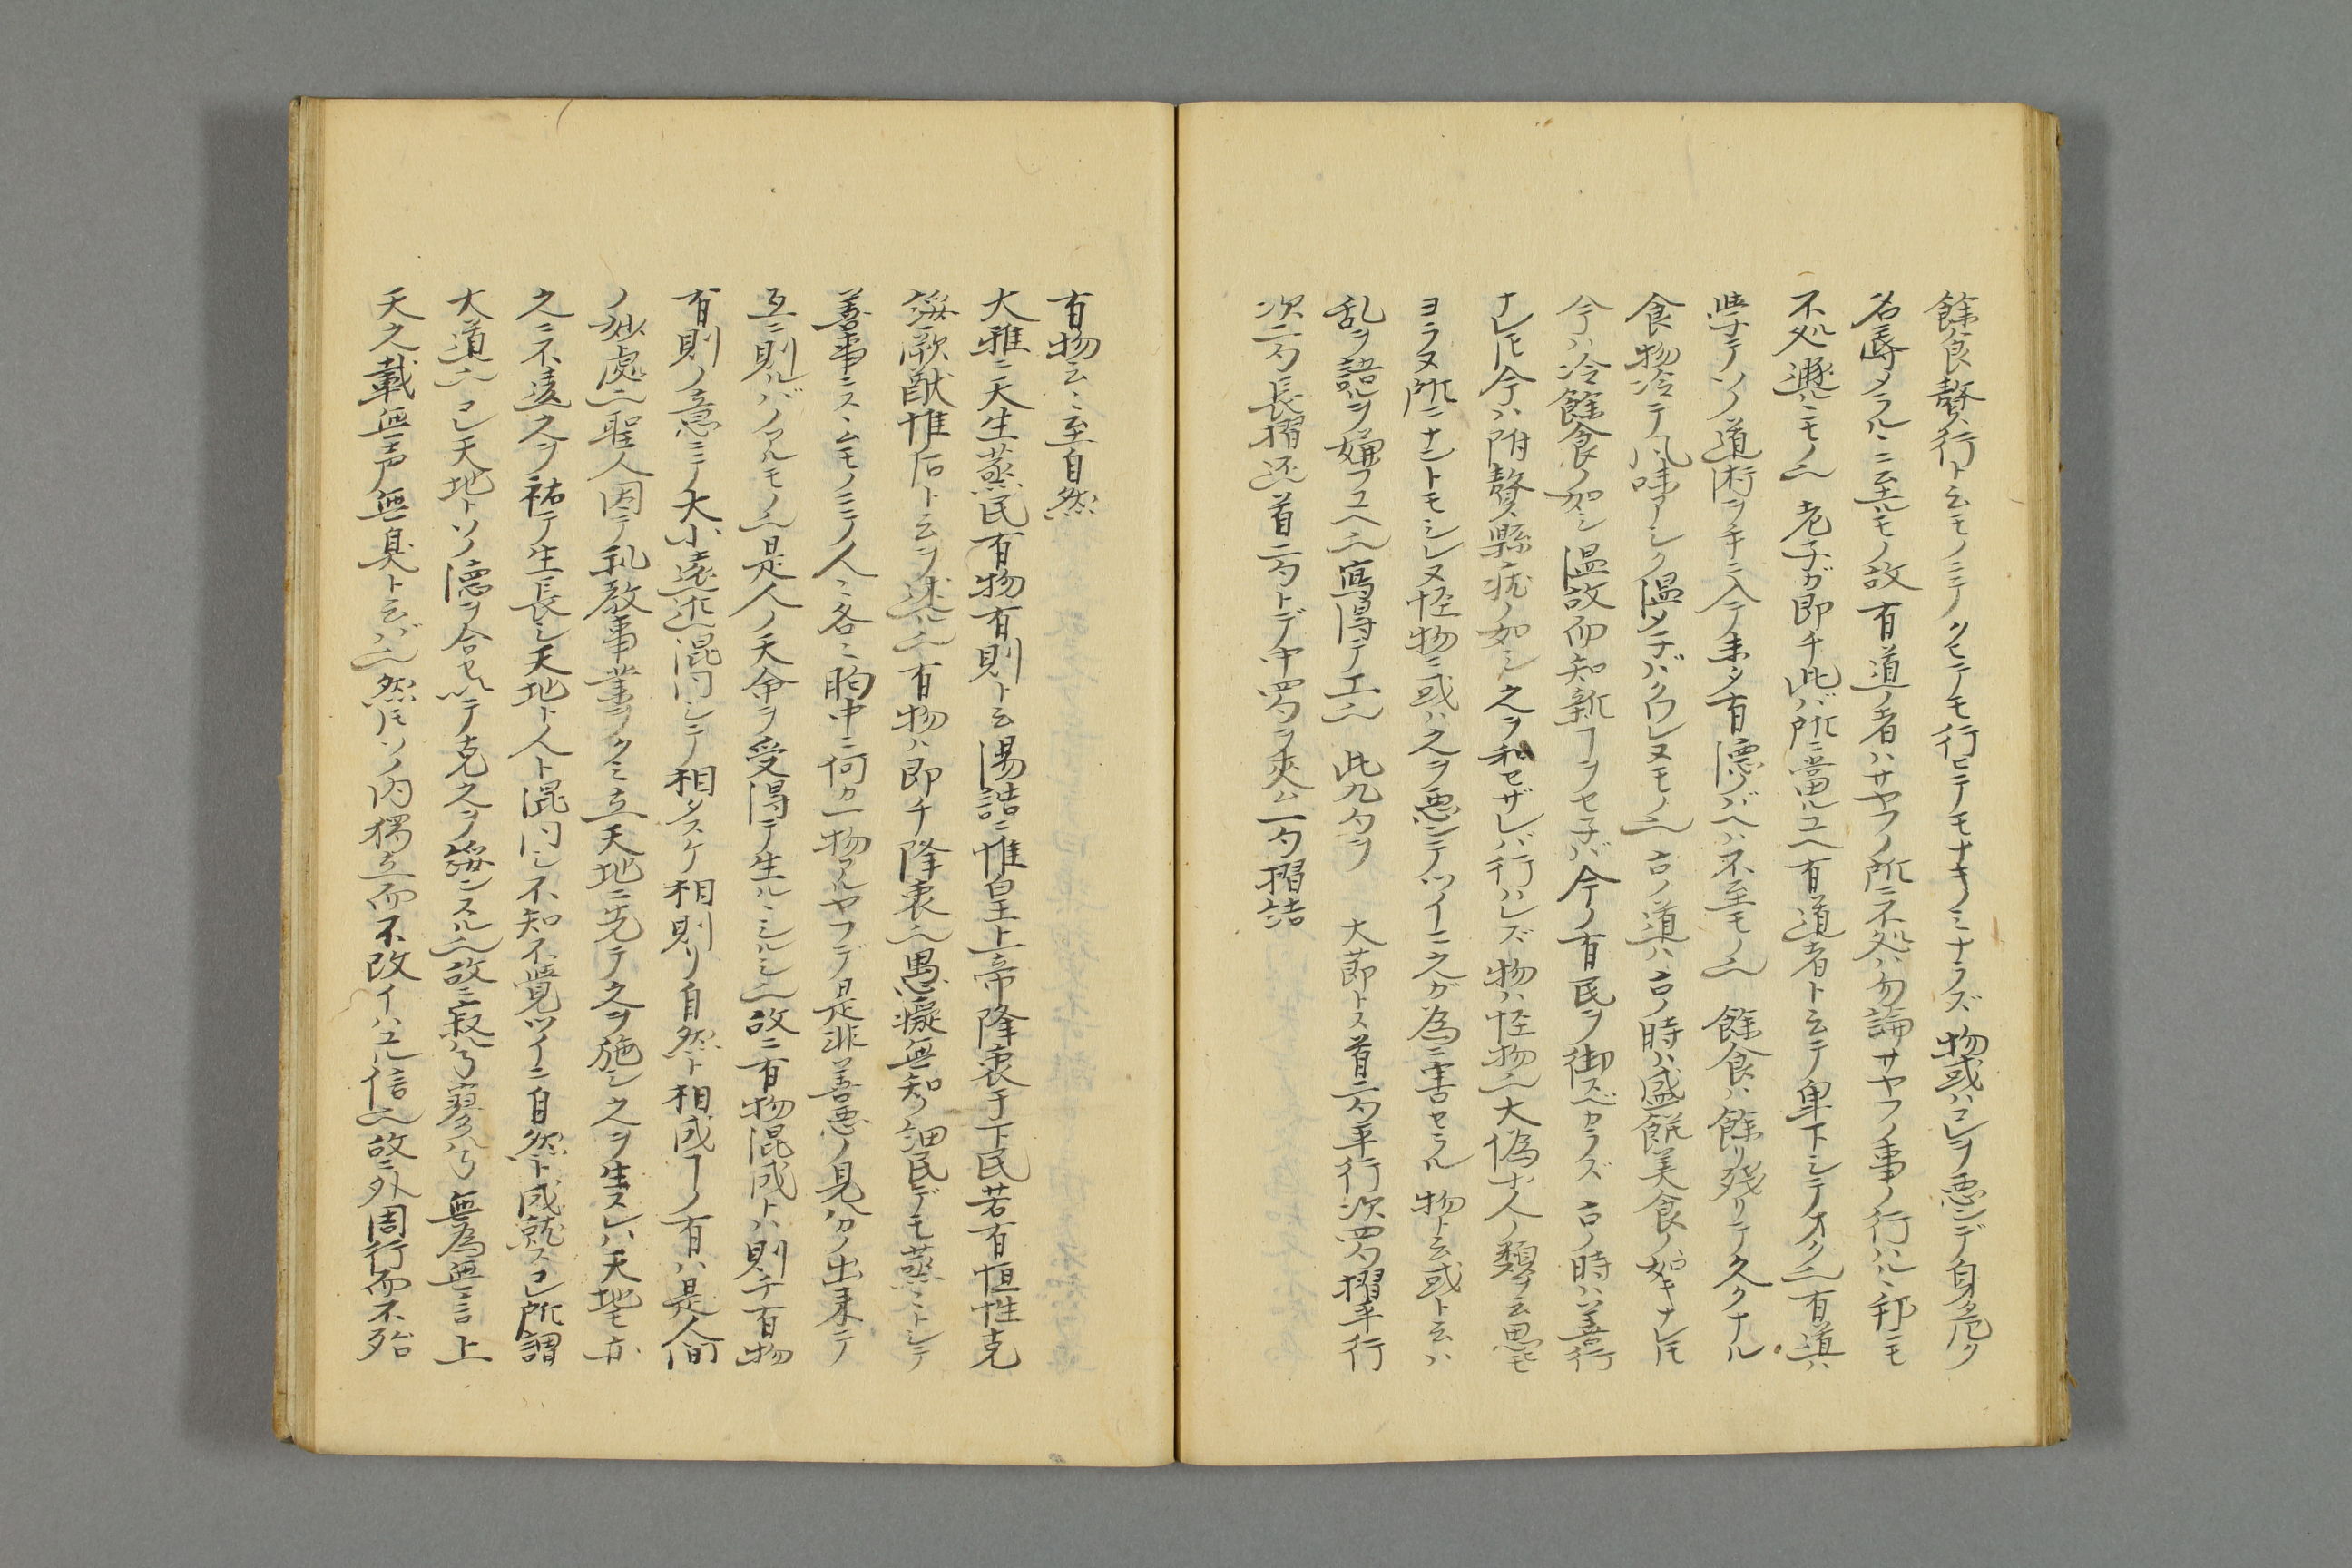 餘食贅行ト云モノニテクヒテモ行ヒテモナキノミナラズ物或ハコレヲ悪ンデ身危ク
名辱メラルヽニ至ルモノ故有道ノ者ハサヤフノ所ニ不処ハ勿論サヤフノ事ノ行ハルヽ邦ニモ
不処遯ルヽモノ也老子ガ即チ此バ所ニ當ルユヘ有道者ト云テ卑下シテオク也有道ハ
学テソノ道術ヲ手ニ入テ来タ有德ノバヘハ不至モノ也餘食ハ餘リ残リテ久クナル
食物冷テ風味アシク温メ子バクワレヌモノ也古ノ道ハ古ノ時ハ盛饌美食ノ如キナレ𪜈
今ハ冷餘食ノ如シ温故而知新ヿヲセ子バ今ノ有民ヲ御スベカラズ古ノ時ハ善行
ナレ𪜈今ハ附贅縣疣ノ如シ之ヲ和セザレバ行ハレズ物ハ怪物也大偽ナ人ノ類ヲ云思モ
ヨラヌ所ニナントモシレヌ怪物ニ或ハ之ヲ悪ンテツイニ之ガ為ニ害セラル物ト云或ト云ハ
乱ヲ語ルヲ嫌フユヘ也寫得テ工也此九句ヲ大節トス首二句平行次四句摺平行
次二句長摺还首二句トデ中四句ヲ夾ム一句摺結
有物云〻至自然
大雅ニ天生蒸民有物有則ト云湯誥ニ惟皇上帝降衷于下民若有恒性克
綏厥猷惟后ト云ヲ述ル也有物ハ即チ降衷也愚癡無知ノ細民デモ蒸〻トシテ
善事ニスヽムモノニテ人〻各〻胸中ニ何カ一物アルヤフデ是非善悪ノ見ハカノ出来テ
互ニ則ルバノアルモノ也是人ノ天命ヲ受得テ生ルヽシルシ也故ニ有物混成トハ則チ有物
有則ノ意ニテ大小遠近混同シテ相タスケ相則リ自然ト相成ヿノ有ハ是人间
ノ妙處也聖人因テ礼教事業ヲクミ立天地ニ先テ之ヲ施シ之ヲ生スレハ天地モ亦
之ニ不違之ヲ祐テ生長シ天地ト人ト混同シ不知不覺ツイニ自然ト成就スコレ所謂
大道也コレ天地トソノ德ヲ合セ以テ克之ヲ綏ンスル也故ニ寂ハ兮寥ハ兮無為無言上
天之載無声無臭ト云バ也然𪜈ソノ内獨立而不改イハユル信也故ニ外周行而不殆